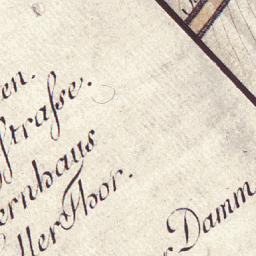 en.
straße.
ernhaus
ller Thor.
r Damm